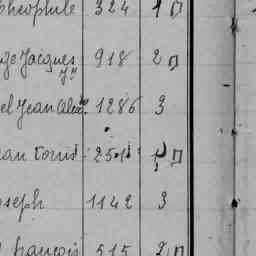 Théophile 324 1
Jacques Jn 918 2
el Jean Alex 1286 3
ean Louis 251
oseph 1142 3
françois 515 2